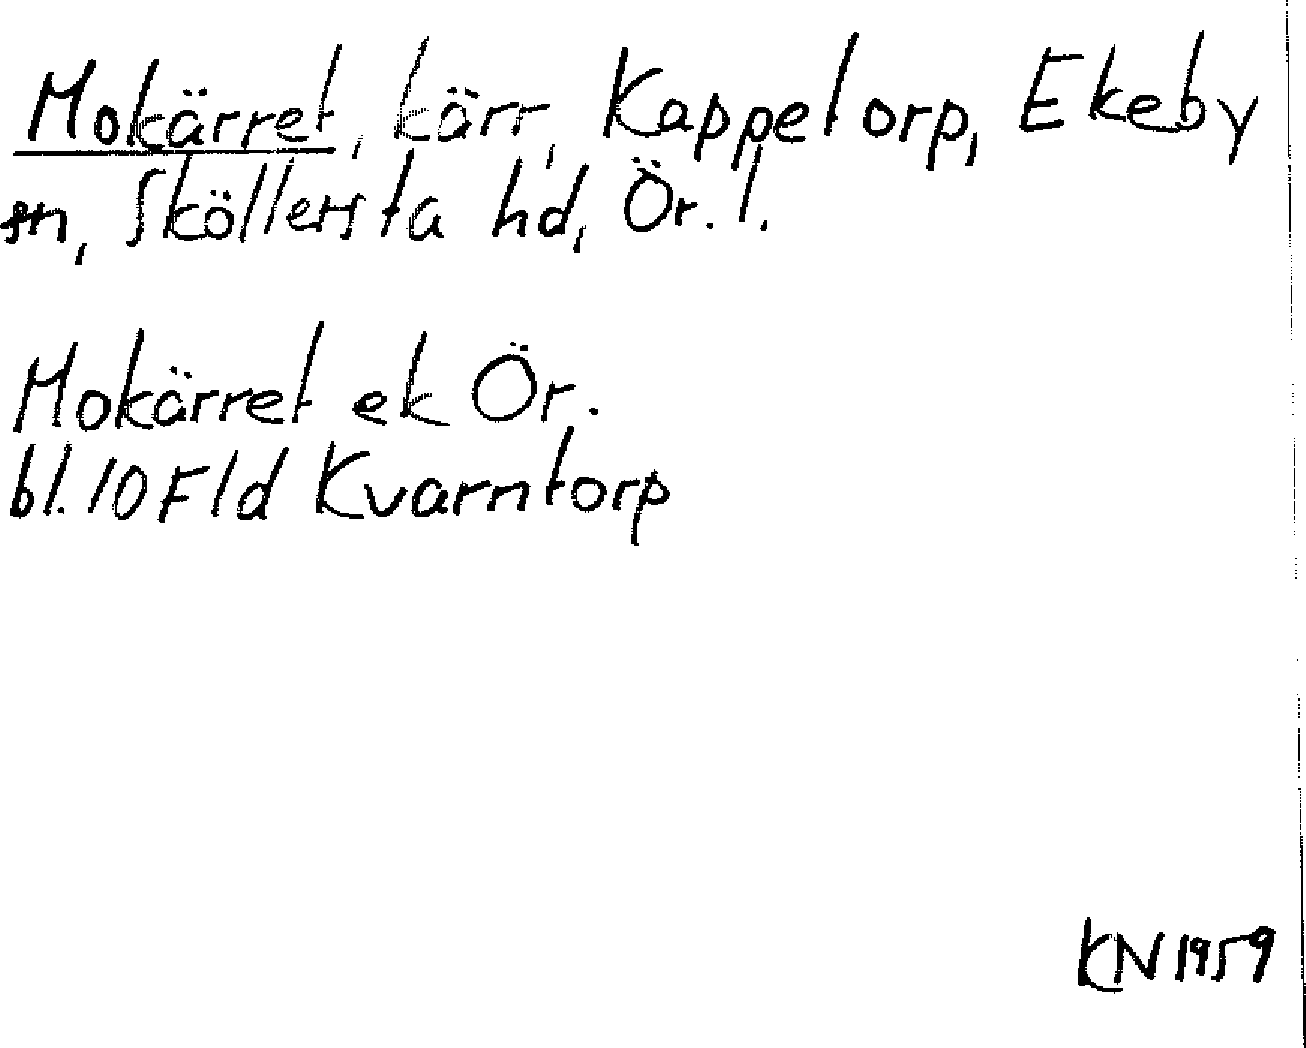 Mokärret, kärr, Kappetorp, Ekeby
sn, Sköllersta hd, Ör. l.
Mokärret ek Ör.
bl. 10 F 1d Kvarntorp
KN 1959